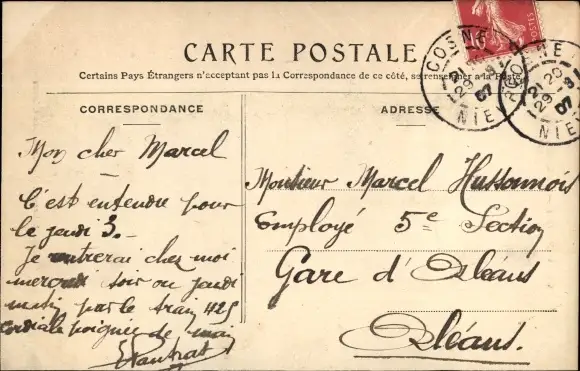 CARTE POSTALE
Certains Pays Étrangers n'acceptant pas la Correspondance de ce côté, se renseigner a la Poste
CORRESPONDANCE
ADRESSE
COSNE
NIEVRE
COSNE
NIE
Mon cher Marcel
C'est entendu pour
le jeudi 3.-
Je rentrerai chez moi
mercredi soir ou jeudi
matin par le train 425
Cordiale poignée de main
Monsieur Marcel Hussonnois
Employé 5e Section
Gare d'Orléans
Orléans.